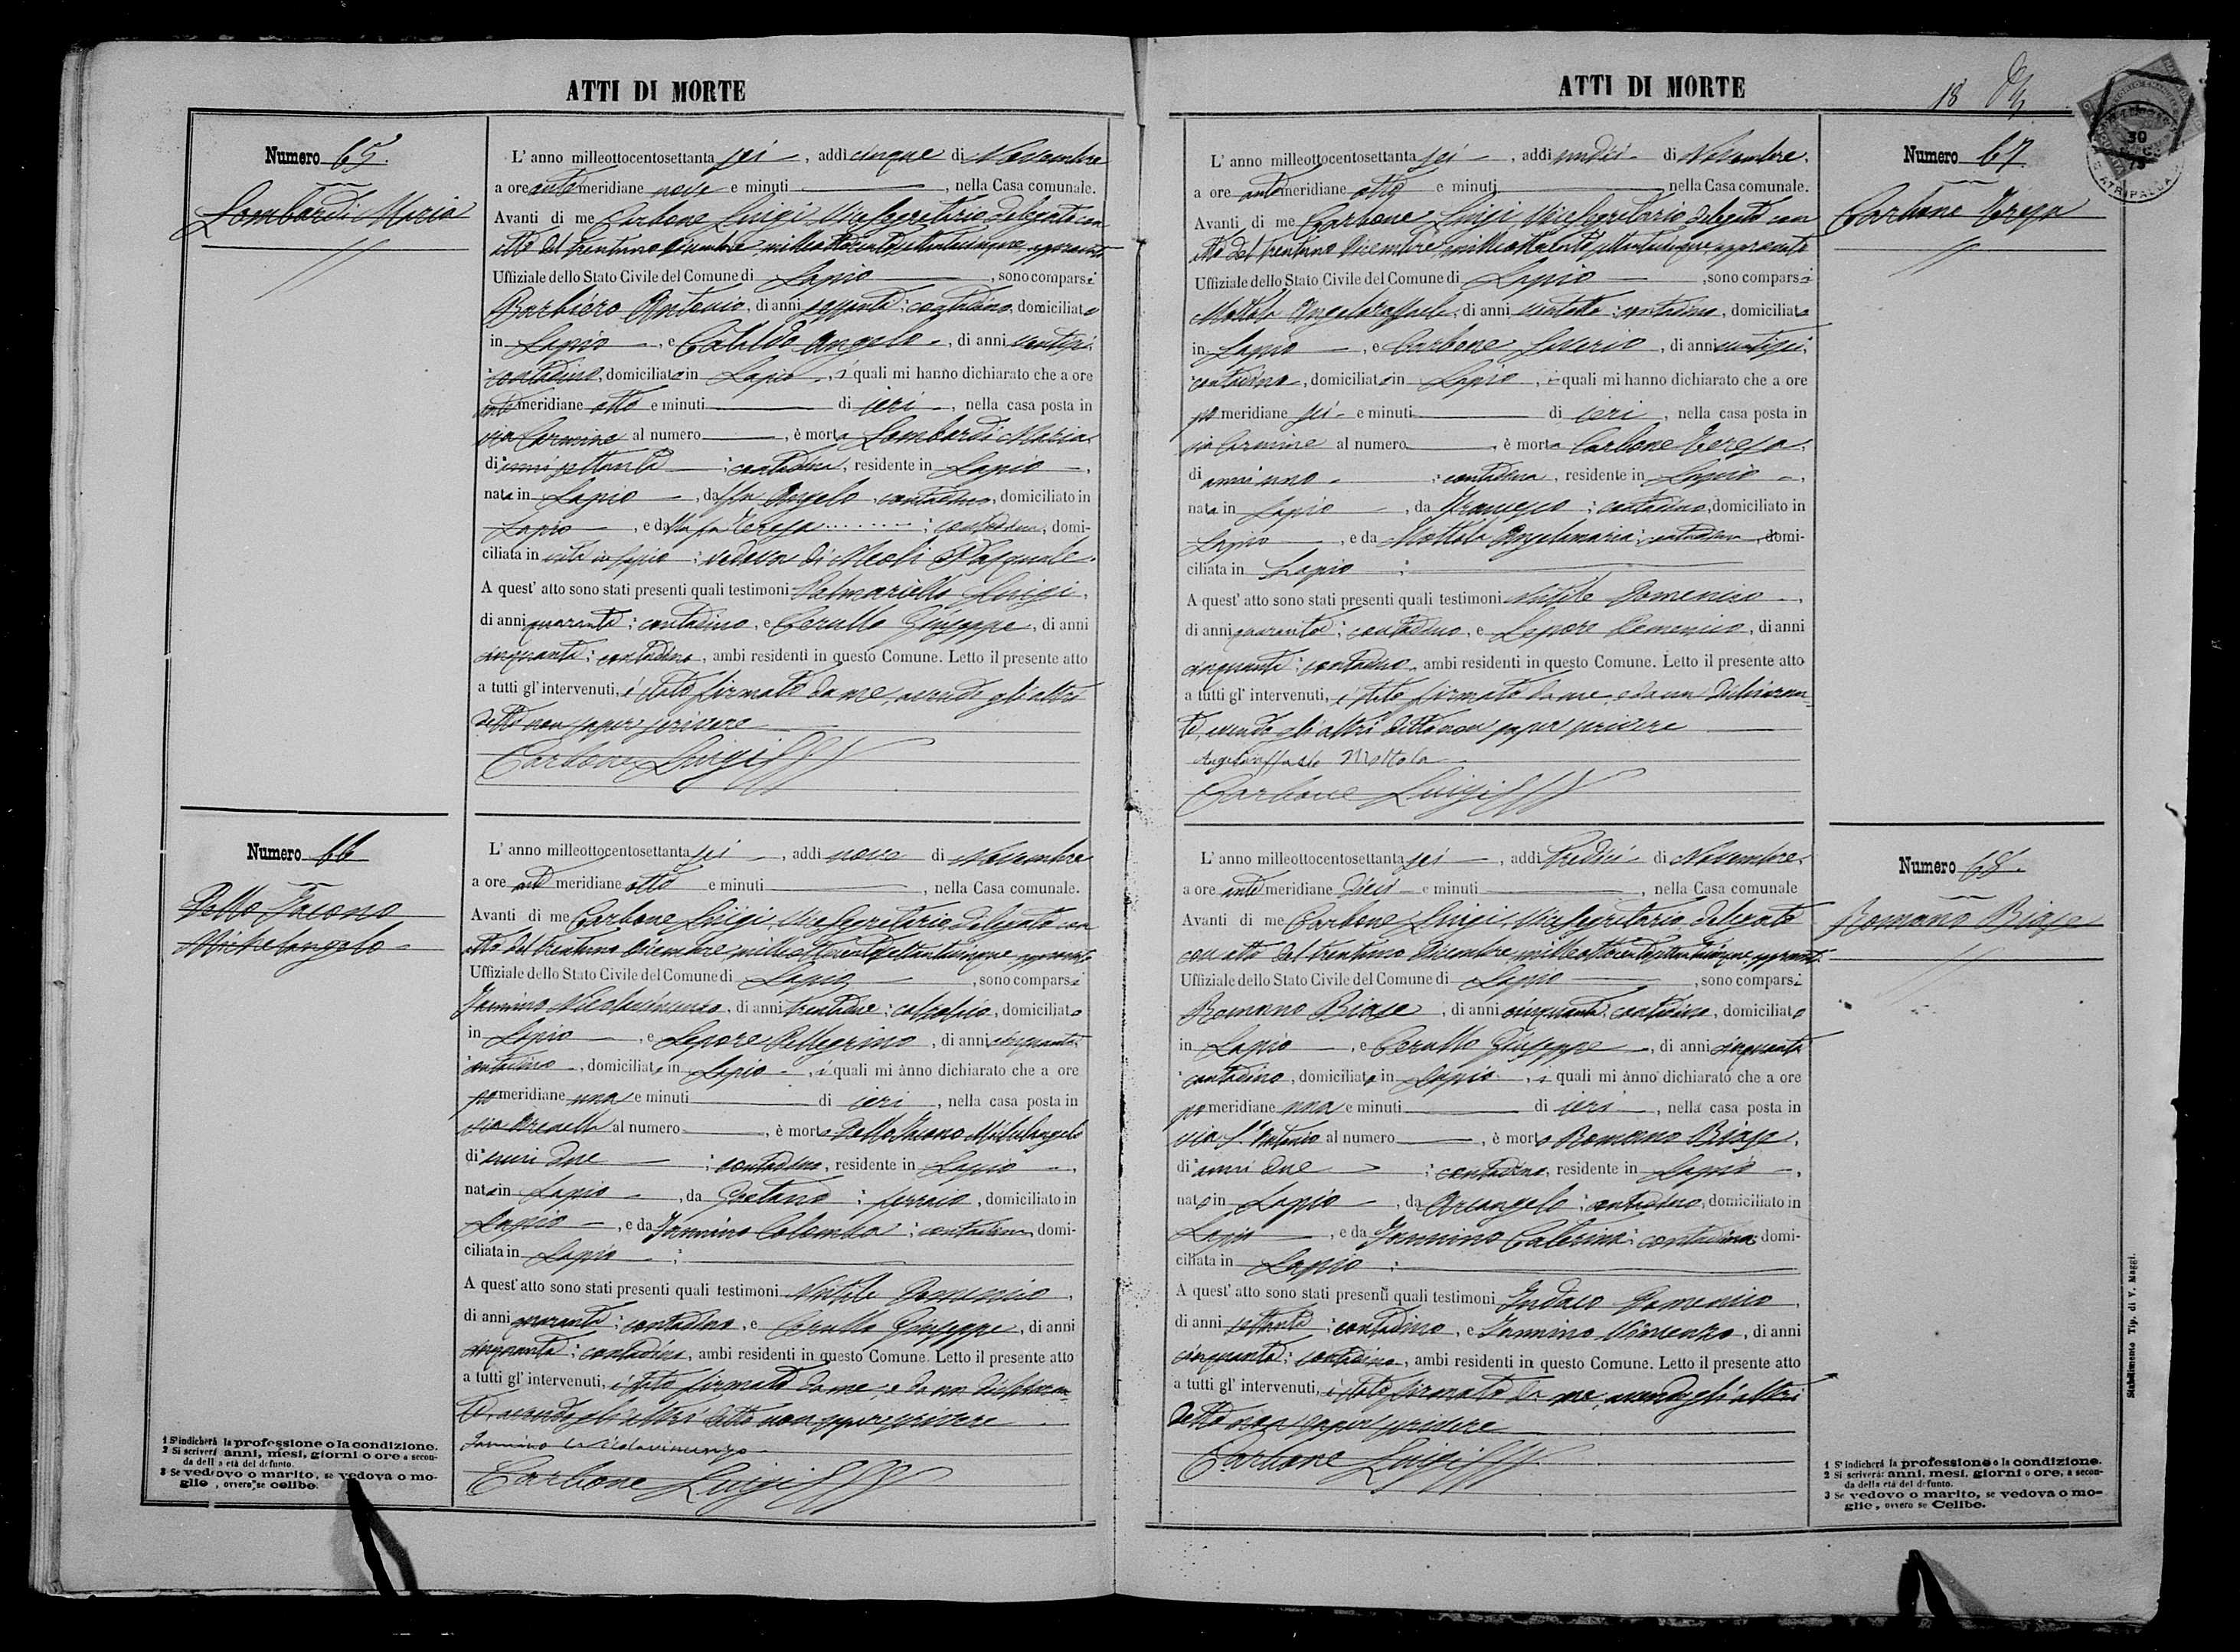 ATTI DI MORTE
Numero 65.
Lombardi Maria
L' anno milleottocentosettanta sei, addì cinque di Novembre
a ore ante meridiane nove e minuti, nella Casa comunale.
Avanti di me Carbone Luigi, Vice Segretario delegato con
atto del trentuno Dicembre milleottocentosettantacinque approvato
Uffiziale dello Stato Civile del Comune di Lapio, sono comparsi
Barbiero Antonio, di anni sessanta; contadino, domiciliato
in Lapio, e Cataldo Angelo, di anni ventisei,
contadino, domiciliato in Lapio, i quali mi hanno dichiarato che a ore
ante meridiane otto e minuti di ieri, nella casa posta in
via Carmine al numero, è morta Lombardi Maria
di anni settanta; contadina, residente in Lapio,
nata in Lapio, da fu Angelo contadino, domiciliato in
Lapio, e da Teresa; contadina, domi-
ciliata in vita in Lapio; vedova di Meoli Pasquale.
A quest' atto sono stati presenti quali testimoni Palmariello Luigi,
di anni quaranta; contadino, e Cerullo Giuseppe, di anni
cinquanta; contadino, ambi residenti in questo Comune. Letto il presente atto
a tutti gl' intervenuti, è stato firmato da me, avendo gli altri
detto non saper scrivere
Carbone Luigi
Numero 66
Dello Iacono
Michelangelo
L' anno milleottocentosettanta sei, addì nove di Novembre
a ore ante meridiane otto e minuti, nella Casa comunale.
Avanti di me Carbone Luigi, Vice Segretario delegato con
atto del trentuno Dicembre milleottocentosettantacinque approvato
Uffiziale dello Stato Civile del Comune di Lapio, sono comparsi
Iannino Nicolavincenzo, di anni trentadue; calzolaio, domiciliato
in Lapio, e Lepore Pellegrino, di anni cinquanta;
contadino, domiciliato in Lapio, i quali mi ànno dichiarato che a ore
po meridiane una e minuti di ieri, nella casa posta in
via al numero, è morto Dello Iacono Michelangelo
di anni due; contadino, residente in Lapio,
nato in Lapio, da Gaetano; ferraio, domiciliato in
Lapio, e da Iannino Colomba; contadina, domi-
ciliata in Lapio;
A quest' atto sono stati presenti quali testimoni Nutile Domenico,
di anni quaranta; contadino, e Cerullo Giuseppe, di anni
cinquanta; contadino, ambi residenti in questo Comune. Letto il presente atto
a tutti gl' intervenuti, è stato firmato da me, e da un dichiaran-
te, avendo gli altri detto non sapere scrivere
Iannino Nicolavincenzo
Carbone Luigi
1 S' indicherà la professione o la condizione.
2 Si scriverà anni, mesi, giorni o ore a secon-
da della età del defunto.
3 Se vedovo o marito, se vedova o mo-
glie, ovvero se celibe.
ATTI DI MORTE
18
30
75
ATRIPALDA
Numero 67.
Carbone Teresa
L' anno milleottocentosettanta sei, addì undici di Novembre.
a ore ante meridiane otto e minuti, nella Casa comunale.
Avanti di me Carbone Luigi, Vice Segretario delegato con
atto del trentuno Dicembre milleottocentosettantacinque, approvato
Uffiziale dello Stato Civile del Comune di Lapio, sono comparsi
Mottola Angeloraffaele, di anni ventotto; contadino, domiciliato
in Lapio, e Carbone Saverio, di anni ventisei;
contadino, domiciliato in Lapio, i quali mi hanno dichiarato che a ore
po meridiane sei e minuti di ieri, nella casa posta in
via Carmine al numero, è morta Carbone Teresa
di anni uno; contadina, residente in Lapio,
nata in Lapio, da Francesco; contadino, domiciliato in
Lapio, e da Mottola Angelamaria; contadina, domi-
ciliata in Lapio;
A quest' atto sono stati presenti quali testimoni Nutile Domenico,
di anni quaranta; contadino, e Lepore Domenico, di anni
cinquanta; contadino, ambi residenti in questo Comune. Letto il presente atto
a tutti gl' intervenuti, è stato firmato da me, e da un dichiaran-
te, avendo gli altri detto non saper scrivere
Angeloraffaele Mottola
Carbone Luigi
Numero 68.
Romano Biase
L' anno milleottocentosettanta sei, addì tredici di Novembre.
a ore ante meridiane dieci e minuti, nella Casa comunale
Avanti di me Carbone Luigi, Vice Segretario delegato
con atto del trentuno Dicembre milleottocentosettantacinque, approvato
Uffiziale dello Stato Civile del Comune di Lapio, sono comparsi
Romano Biase, di anni cinquanta; contadino, domiciliato
in Lapio, e Cerullo Giuseppe, di anni cinquanta
contadino, domiciliato in Lapio, i quali mi ànno dichiarato che a ore
po meridiane una e minuti di ieri, nella casa posta in
via S. Antonio al numero, è morto Romano Biase,
di anni due; contadino, residente in Lapio,
nato in Lapio, da Arcangelo; contadino, domiciliato in
Lapio, e da Iannino Caterina; contadina, domi-
ciliata in Lapio;
A quest' atto sono stati presenti quali testimoni Indaco Domenico,
di anni settanta; contadino, e Iannino Vincenzo, di anni
cinquanta; contadino, ambi residenti in questo Comune. Letto il presente atto
a tutti gl' intervenuti, è stato firmato da me avendo gli altri
detto non saper scrivere
Carbone Luigi
1 S' indicherà la professione o la condizione.
2 Si scriverà: anni, mesi, giorni o ore, a secon-
da della età del defunto.
3 Se vedovo o marito, se vedova o mo-
glie, ovvero se Celibe.
Stabilimento Tip. di V. Maggi.